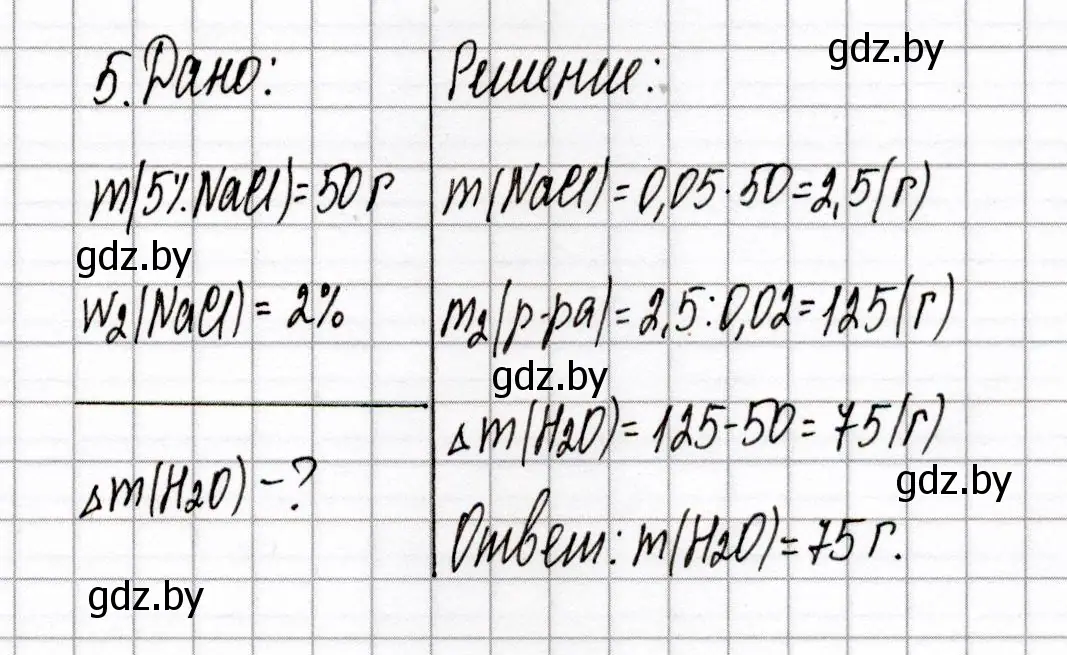 gdz.by
5. Дано:
m(5% NaCl) = 50 г
gdz.by
w₂(NaCl) = 2%
Δm(H₂O) - ?
gdz.by
Решение:
m(NaCl) = 0,05 · 50 = 2,5 (г)
m₂(р-ра) = 2,5 : 0,02 = 125 (г)
gdz.by
Δm(H₂O) = 125 - 50 = 75 (г)
gdz.by
Ответ: m(H₂O) = 75 г.